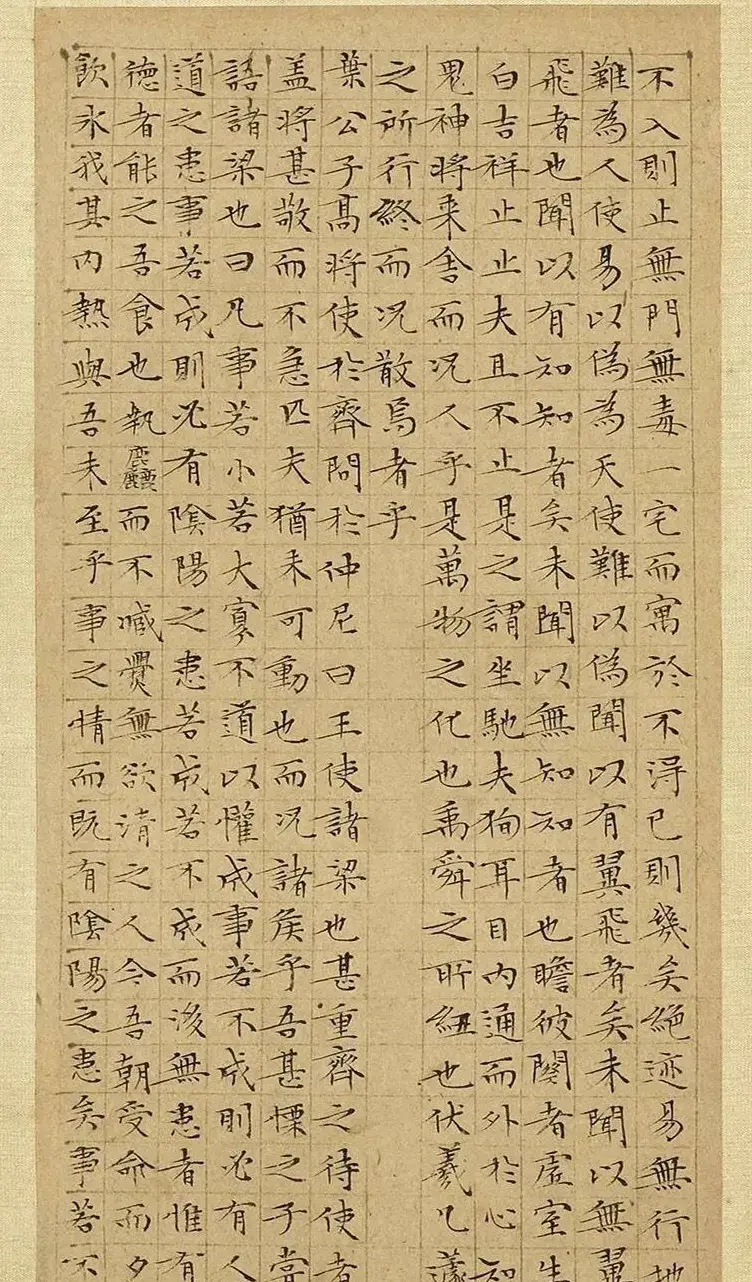 不入則止無門無毒一宅而寓於不淂已則幾矣絕迹易無行地
難為人使易以偽為天使難以偽聞以有翼飛者矣未聞以無翼
飛者也聞以有知知者矣未聞以無知知者也瞻彼闋者虛室生
白吉祥止止夫且不止是之謂坐馳夫徇耳目内通而外於心知
鬼神將来舍而況人乎是萬物之化也禹舜之所紐也伏羲几蘧
之所行終而況散焉者乎
葉公子髙將使於齊問於仲尼曰王使諸梁也甚重齊之待使者
盖將甚敬而不急匹夫猶未可動也而況諸侯乎吾甚慄之子甞
語諸梁也曰凡事若小若大寡不道以懽成事若不成則必有人
道之患事若成則必有隂陽之患若成若不成而後無患者惟有
德者能之吾食也執麤而不臧爨無欲清之人今吾朝受命而夕
飲氷我其内熱與吾未至乎事之情而既有隂陽之患矣事若不